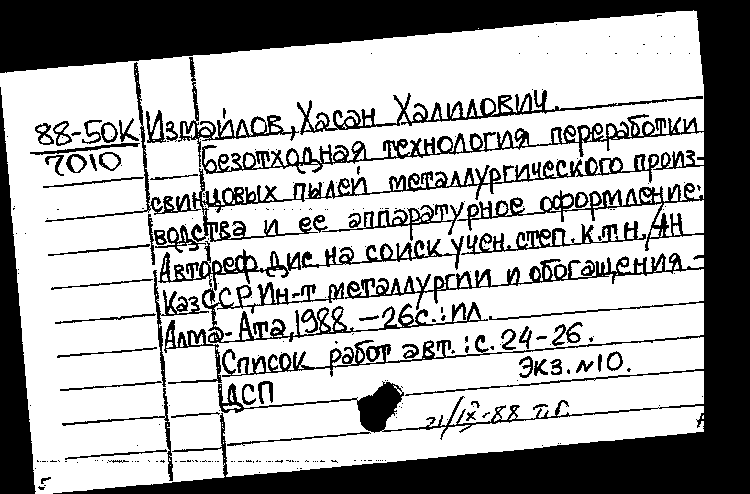 88-50К Измайлов, Хасан Халилович.
7010 Безотходная технология переработки
свинцовых пылей металлургического произ-
водства и ее аппаратурное оформление:
Автореф. дис. на соиск. учен. степ. к.т.н. / АН
КазССР, Ин-т металлургии и обогащения. -
Алма-Ата, 1988. - 26с.: ил.
Список работ авт.: с. 24-26.
Экз. №10.
ДСП
21/IX-88